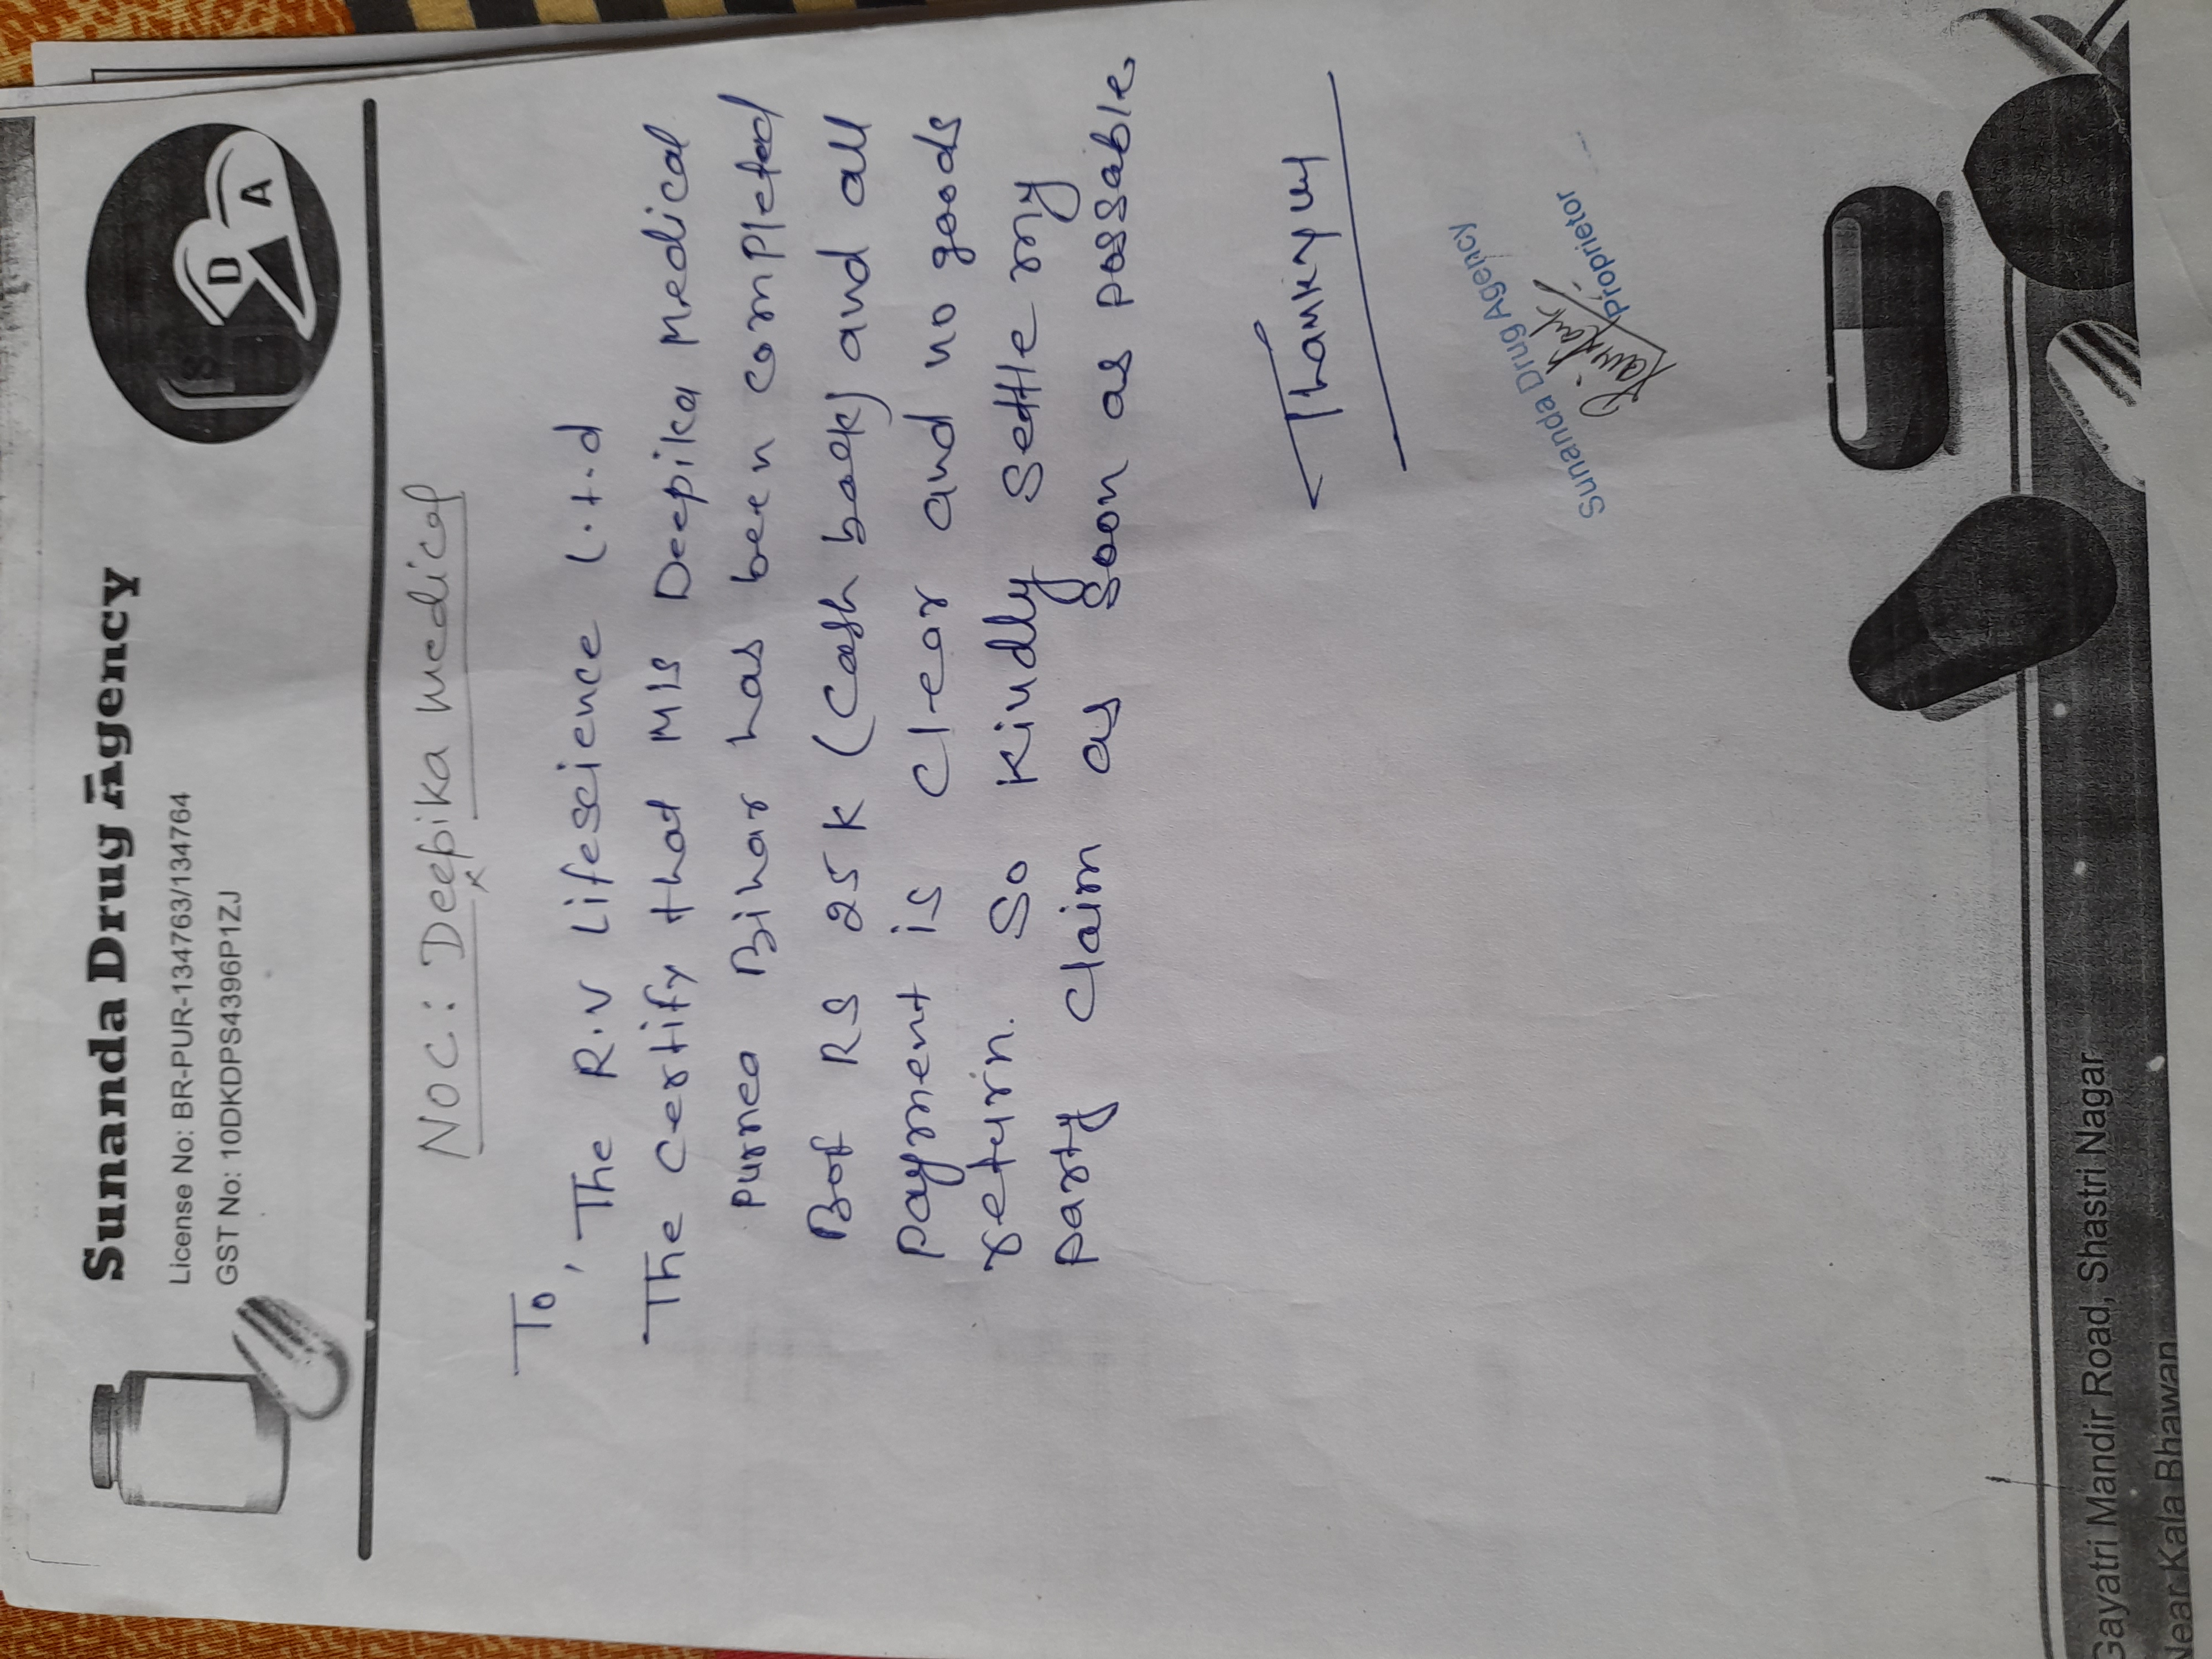 Sunanda Drug Agency
License No: BR-PUR-134763/134764
GST No: 10DKDPS4396P1ZJ
S D A
NOC: Deepika medical
To,
The R.V Lifescience L.t.d
The certify that M/S Deepika Medical
Purnea Bihar has been completed
Bof RS 25K (Cash book) and all
payment is Clear and no goods
return. So Kindly Settle my
party Claim as Soon as possable
Thankyou
Sunanda Drug Agency
Proprietor
Gayatri Mandir Road, Shastri Nagar
Near Kala Bhawan